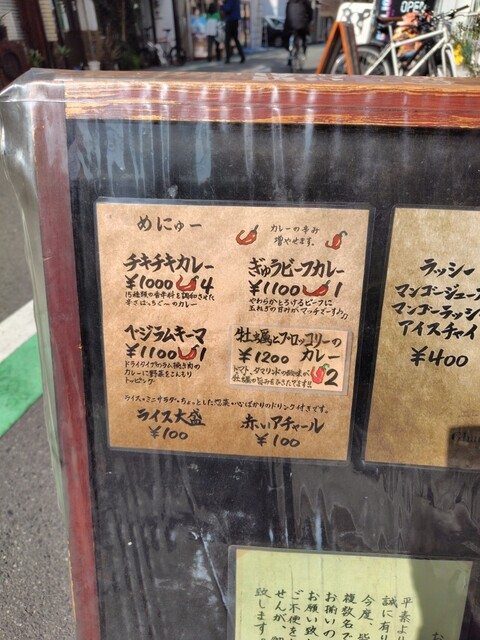 OPEN
めにゅー
カレーの辛み
増やせます。
チキチキカレー
¥1000 4
15種類の香辛料を調和させた
辛さはちぐ〜のカレー
ぎゅうビーフカレー
¥1100 1
やわらかとろけるビーフに
玉ねぎの甘みがマッチですす♪
ベジラムキーマ
¥1100 1
ドライタイプのラム挽き肉の
カレーに野菜をこんもり
トッピング。
牡蠣とブロッコリーの
カレー
¥1200
トマト、タマリンドの酸味が
牡蠣の旨みを引きたてます!! 2
ライス・ミニサラダ・ちょっとした惣菜・
ライス大盛
¥100
赤いアチャール
¥100
ラッシー
マンゴージュー
マンゴーラッシ
アイスチャイ
¥400
平素より
誠に有り
今度、
複数名で
お揃いの
お願い致
ご不便を
せんが、
致します